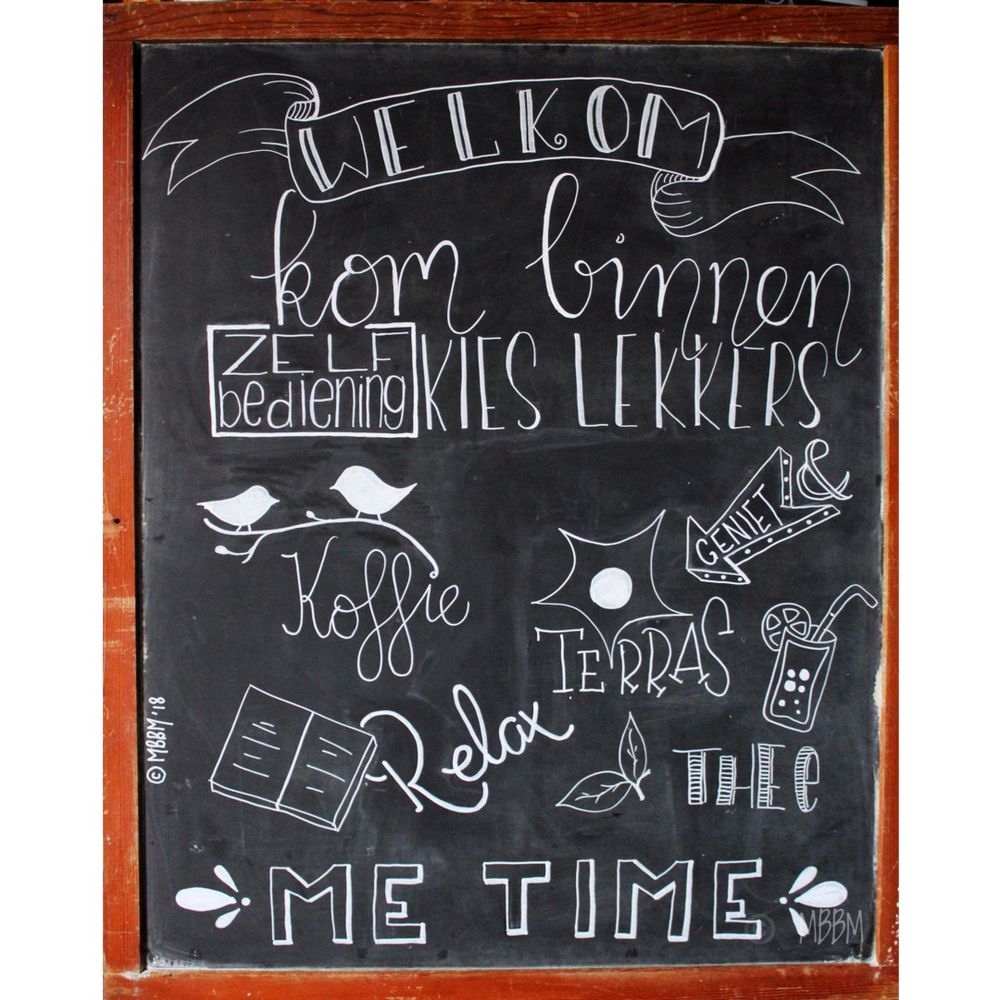 WELKOM
kom binnen
ZELF
bediening
KIES LEKKERS
&
GENIET
Koffie
TERRAS
Relax
THEE
ME TIME
© MBBM '18
© MBBM